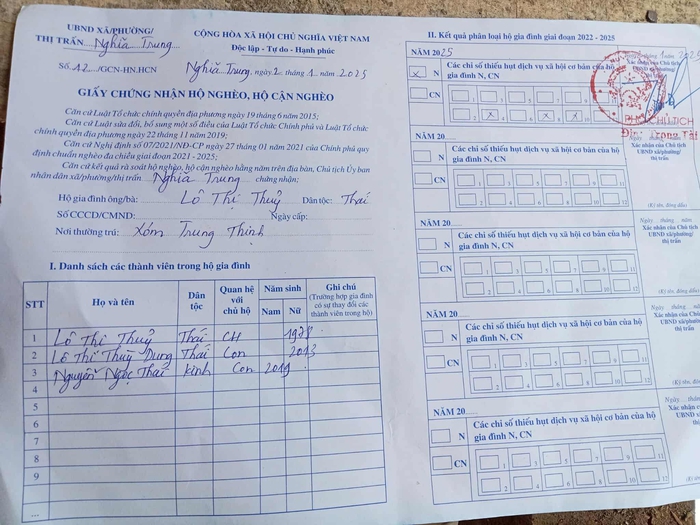 UBND XÃ/PHƯỜNG/
THỊ TRẤN Nghĩa Trung
Số: 12 /GCN-HN.HCN
CỘNG HÒA XÃ HỘI CHỦ NGHĨA VIỆT NAM
Độc lập - Tự do - Hạnh phúc
Nghĩa Trung, ngày 2 tháng 1 năm 2025
GIẤY CHỨNG NHẬN HỘ NGHÈO, HỘ CẬN NGHÈO
Căn cứ Luật Tổ chức chính quyền địa phương ngày 19 tháng 6 năm 2015;
Căn cứ Luật sửa đổi, bổ sung một số điều của Luật Tổ chức Chính phủ và Luật Tổ chức
chính quyền địa phương ngày 22 tháng 11 năm 2019;
Căn cứ Nghị định số 07/2021/NĐ-CP ngày 27 tháng 01 năm 2021 của Chính phủ quy
định chuẩn nghèo đa chiều giai đoạn 2021 - 2025;
Căn cứ kết quả rà soát hộ nghèo, hộ cận nghèo hằng năm trên địa bàn, Chủ tịch Ủy ban
nhân dân xã/phường/thị trấn Nghĩa Trung chứng nhận:
Hộ gia đình ông/bà: Lô Thị Thuỷ Dân tộc: Thái
Số CCCD/CMND: Ngày cấp:
Nơi thường trú: Xóm Trung Thịnh
I. Danh sách các thành viên trong hộ gia đình
STT Họ và tên Dân tộc Quan hệ với chủ hộ Năm sinh Nam Nữ Ghi chú
(Trường hợp gia đình có sự thay đổi các thành viên trong hộ)
1 Lô Thị Thuỷ Thái CH 1978
2 Lê Thị Thuỳ Dung Thái Con 2013
3 Nguyễn Ngọc Thái Kinh Con 2019
4
5
6
7
8
9
...
II. Kết quả phân loại hộ gia đình giai đoạn 2022 - 2025
NĂM 2025
X N
CN
Các chỉ số thiếu hụt dịch vụ xã hội cơ bản của hộ
gia đình N, CN
1 3 5 7 9 11
2 X 4 X 6 8 X 10 12
tháng 1 /2025
Xác nhận của Chủ tịch
UBND xã/phường/
PHÓ CHỦ TỊCH
NĂM 20
N
CN
Các chỉ số thiếu hụt dịch vụ xã hội cơ bản của hộ
gia đình N, CN
1 3 5 7 9 11
2 4 6 8 10 12
Xác nhận của Chủ tịch
UBND xã/phường/
thị trấn
(Ký tên, đóng dấu)
NĂM 20
N
CN
Các chỉ số thiếu hụt dịch vụ xã hội cơ bản của hộ
gia đình N, CN
1 3 5 7 9 11
2 4 6 8 10 12
Ngày... tháng
Xác nhận của Chủ tịch
UBND xã/phường/
thị trấn
(Ký tên, đóng dấu)
NĂM 20
N
CN
Các chỉ số thiếu hụt dịch vụ xã hội cơ bản của hộ
gia đình N, CN
1 3 5 7 9 11
2 4 6 8 10 12
Ngày... tháng
Xác nhận của Chủ
UBND xã/phường
thị trấn
(Ký tên, đón
NĂM 20
N
CN
Các chỉ số thiếu hụt dịch vụ xã hội cơ bản của hộ
gia đình N, CN
1 3 5 7 9 11
2 4 6 8 10 12
Ngày... thán
Xác nhận c
UBND xã/
thị
(Ký tê